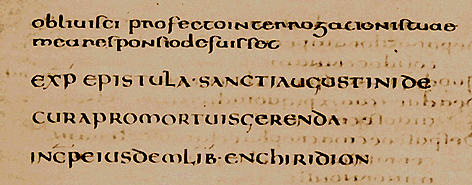 obliuisci profecto interrogationis tuae
mea responsio defuisset
EXP EPISTULA · SANCTI AUGUSTINI DE
CURA PRO MORTUIS GERENDA
INCP EIUSDEM LIB · ENCHIRIDION